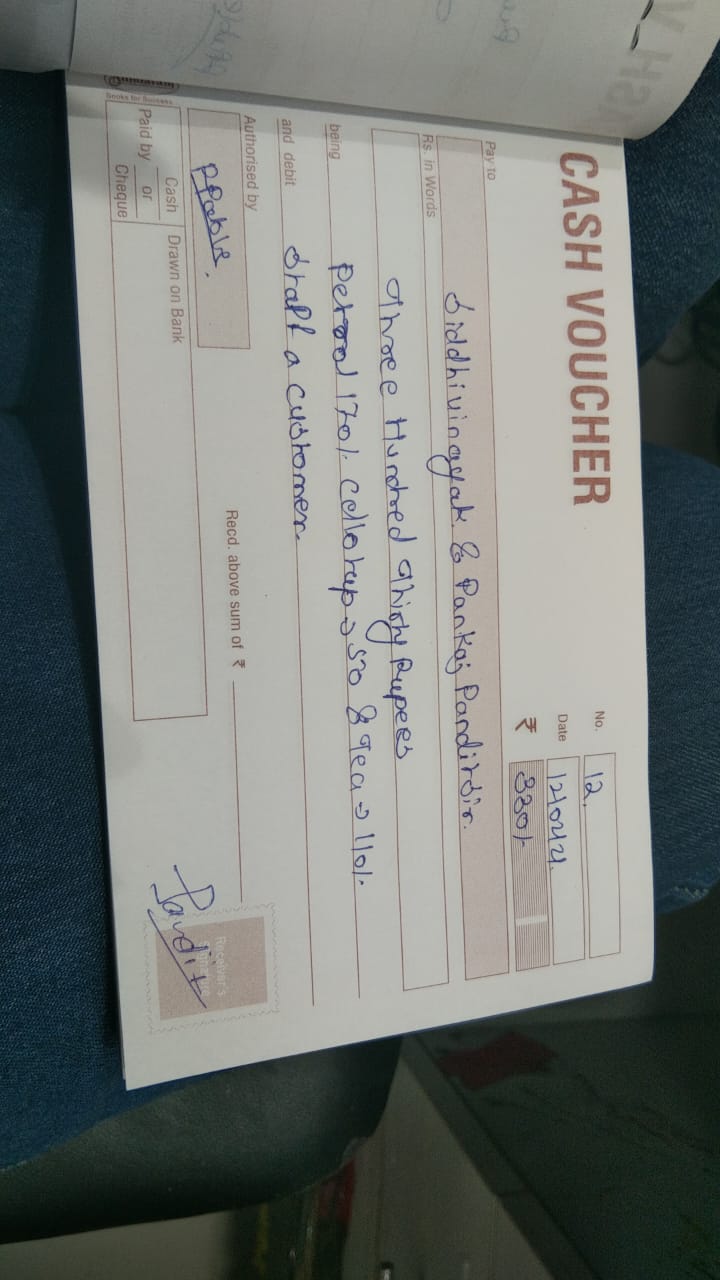 CASH VOUCHER
No. 12.
Date 12/04/24.
₹ 330/-
Pay to Siddhivinayak & Pankaj Pandit sir.
Rs. in Words
Three Hundred Thirty Rupees
being Petrol 170/- cellotap → 50 & Tea → 110/-
and debit Staff & customer.
Authorised by
Recd. above sum of ₹
Pandit
Receiver's
Cash
Paid by or
Cheque
Drawn on Bank
Sundaram
Books for Success